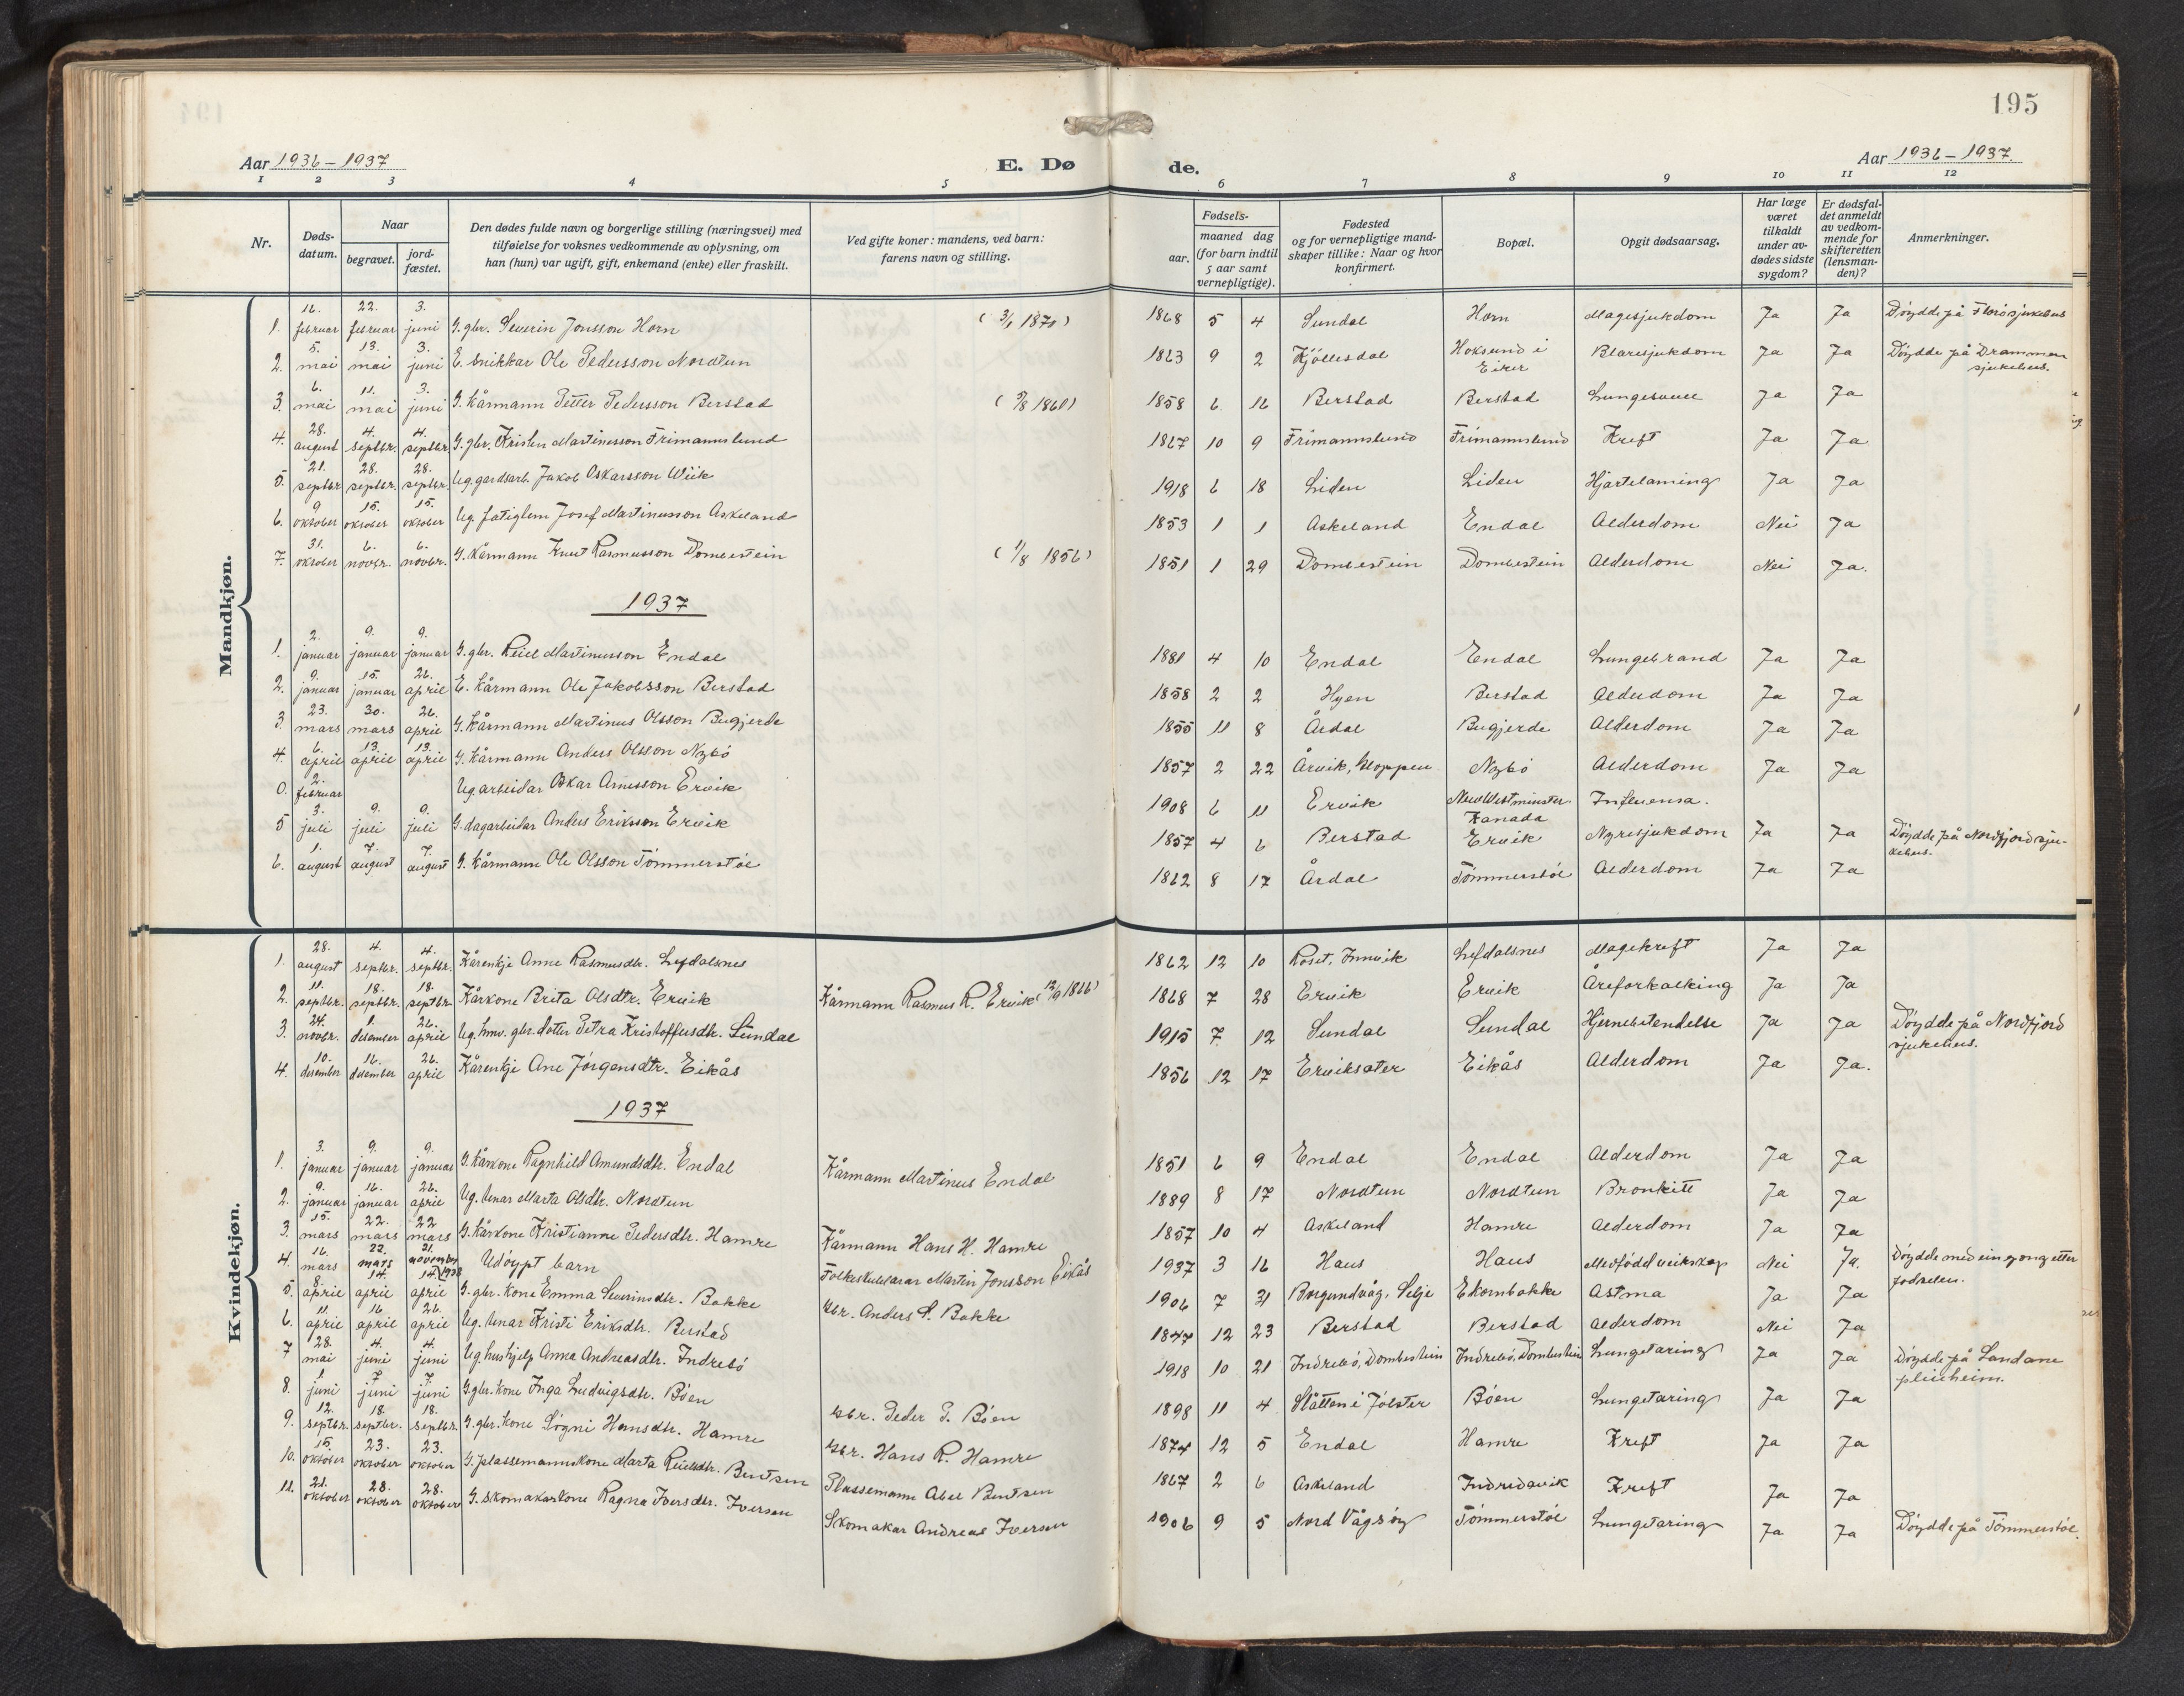 195
Aar 1936–1937 E. Dø de. Aar 1936–1937.
1 2 3 4 5 6 7 8 9 10 11 12
Nr. Døds-datum. Naar begravet. jord-fæstet. Den dødes fulde navn og borgerlige stilling (næringsvei) med tilføielse for voksnes vedkommende av oplysning, om han (hun) var ugift, gift, enkemand (enke) eller fraskilt. Ved gifte koner: mandens, ved barn: farens navn og stilling. Fødsels- aar. maaned dag (for barn indtil 5 aar samt vernepligtige). Fødested og for vernepligtige mand-skaper tillike: Naar og hvor konfirmert. Bopæl. Opgit dødsaarsag. Har læge været tilkaldt under av-dødes sidste sygdom? Er dødsfal-det anmeldt av vedkom-mende for skifteretten (lensman-den)? Anmerkninger.
Mandkjøn.
1. 16. februar 22. februar 3. juni G. gbr. Severin Jonsson Horn 1868 5 4 Sundal Horn Magesjukdom Ja Ja Döydde på Florö sjukehus
2. 5. mai 13. mai 3. juni E. snikkar Ole Pedersson Nordtun 1863 9 2 Kjöllesdal Hoksund i Eiker Blæresjukdom Ja Ja Döydde på Drammen sjukehus.
3. 6. mai 11. mai 3. juni G. Kårmann Petter Pedersson Berstad 1858 6 16 Berstad Berstad Ja Ja
4. 28. august 4. septbr. 4. septbr. G. gbr. Kristen Martinusson Frimannslund 1867 10 9 Frimannslund Frimannslund Kreft Ja Ja
5. 21. septbr 28. septbr. 28. septbr. Ug. gardsarb. Jakob Oskarsson Wiik 1918 6 18 Liden Liden Hjartelaming Ja Ja
6. 9 oktober 15. oktober 15. oktober Ug. fatiglem Josef Martinusson Askeland 1853 1 1 Askeland Endal Alderdom Nei Ja
7. 31. oktober 6. novbr. 6. novbr. G. Kårmann Knut Rasmusson Dombestein (1/8 1856) 1851 1 29 Dombestein Dombestein Alderdom Nei Ja.
1937
1. 2. januar 9. januar 9. januar G. gbr. Reiel Martinusson Endal 1881 4 10 Endal Endal Lungebrand Ja Ja
2. 9. januar 15. januar 26. april E. Kårmann Ole Jakobsson Berstad 1858 2 2 Hyen Berstad Alderdom Ja Ja
3. 23. mars 30. mars 26. april G. Kårmann Martinus Olsson Bugjerde 1855 11 8 Årdal Bugjerde Alderdom Ja Ja
4. 6. april 13. april 13. april G. Kårmann Anders Olsson Nybö 1857 2 22 Årvik, Gloppen Nybö Alderdom Ja Ja
0. 2. februar Ug. arbeidar Oskar Arnesson Ervik 1908 6 11 Ervik New Westminster. Kanada Influensa.
5 3. juli 9. juli 9. juli G. dagarbeidar Anders Eriksson Ervik 1857 4 6 Berstad Ervik Nyresjukdom Ja Ja Döydde på Nordfjord sju-kehus.
6. 1. august 7. august 7. august G. Kårmann Ole Olsson Tömmerstöl 1862 8 17 Årdal Tömmerstöl Alderdom Ja Ja
Kvindekjøn.
1. 28. august 4. septbr. 4. septbr. Kårenkje Anne Rasmusdtr. Lefdalsnes 1862 12 10 Roset, Innvik Lefdalsnes Magekreft Ja Ja
2. 11. septbr. 18. septbr. 18. septbr. Kårkone Brita Olsdtr. Ervik Kårmann Rasmus R. Ervik (12/9 1866) 1868 7 28 Ervik Ervik Åreforkalking Ja Ja
3. 24. novbr. 1. desember 26. april Ug. hmv. gbr. dotter Petra Kristoffersdtr. Sundal 1915 7 12 Sundal Sundal Hjernebetendelse Ja Ja Döydde på Nordfjord sjukehus.
4. 10. desember 16. desember 26. april Kårenkje Ane Jörgensdtr. Eikås 1856 12 17 Erviksæter Eikås Alderdom Ja Ja.
1937
1. 3. januar 9. januar 9. januar G. Kårkone Ragnhild Amundsdtr. Endal Kårmann Martinus Endal 1851 6 9 Endal Endal Alderdom Ja Ja
2. 9. januar 16. januar 26. april Ug. tenar Marta Olsdtr. Nordtun 1889 8 17 Nordtun Nordtun Bronkitt Ja Ja
3. 15. mars 22. mars 22 mars G. Kårkone Kristianne Pedersdtr. Hamre Kårmann Hans H. Hamre 1857 10 4 Askeland Hamre Alderdom Ja Ja
4. 16. mars 22. mars 21. november 1938 Udöypt barn Folkeskulelærar Martin Jonsson Eikås 1937 3 16 Haus Haus Medfödd veikskap Nei Ja. Döydde med ein gong etter födselen.
5. 8. april 14. april 14. april G. gbr. kone Emma Severinsdtr. Bakke Gbr. Anders S. Bakke 1906 7 31 Borgundvåg, Selje Ekornbakke Astma Ja Ja
6. 11. april 16. april 26. april Ug. tenar Kristi Eriksdtr. Berstad 1847 12 23 Berstad Berstad Alderdom Nei Ja
7 28. mai 4. juni 4. juni Ug. hushjelp Anna Andreasdtr. Indrebö 1918 10 21 Indrebö, Dombestein Indrebö, Dombestein Lungetaring Ja Ja Döydde på Sandane pleieheim.
8. 1. juni 7. juni 7. juni G. gbr. kone Inga Ludvigsdtr. Böen Gbr. Peder P. Böen 1898 11 4 Slåtten i Jölster Böen Lungetaring Ja Ja
9. 12. septbr. 18. septbr. 18. septbr. G. gbr. kone Sögni Hansdtr. Hamre Gbr. Hans R. Hamre 1874 12 5 Endal Hamre Kreft Ja Ja
10. 15. oktober 23. oktober 23. oktober G. plassemannskone Marta Reielsdtr. Bentsen Plassemann Abel Bentsen 1867 2 6 Askeland Indredavik Kreft Ja Ja
11. 21. oktober 28. oktober 28. oktober G. Skomakarkone Ragna Iversdtr. Iversen Skomakar Andreas Iversen 1906 9 5 Nord Vågsöy Tömmerstöl Lungetaring Ja Ja Döydde på Tömmerstöl.